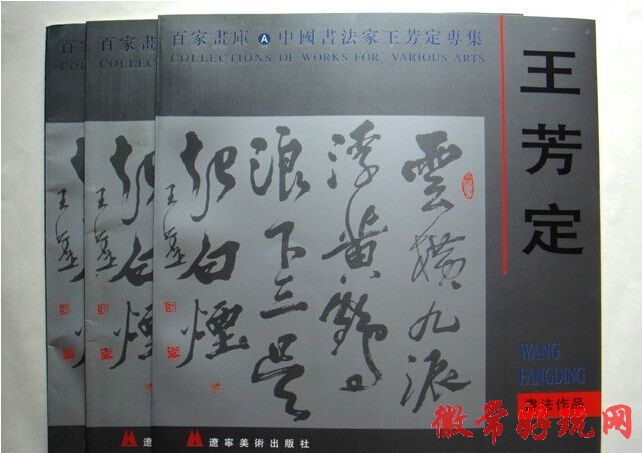 百家畫庫 A 中國書法家王芳定專集
COLLECTIONS OF WORKS FOR VARIOUS ARTS
王芳定
雲横九派
浮黄鶴
浪下三吴
起白煙
WANG
FANGDING
書法作品
遼寧美術出版社
百家畫
COLLECT
起白煙
遼
百家
COLLE
徽常好玩网